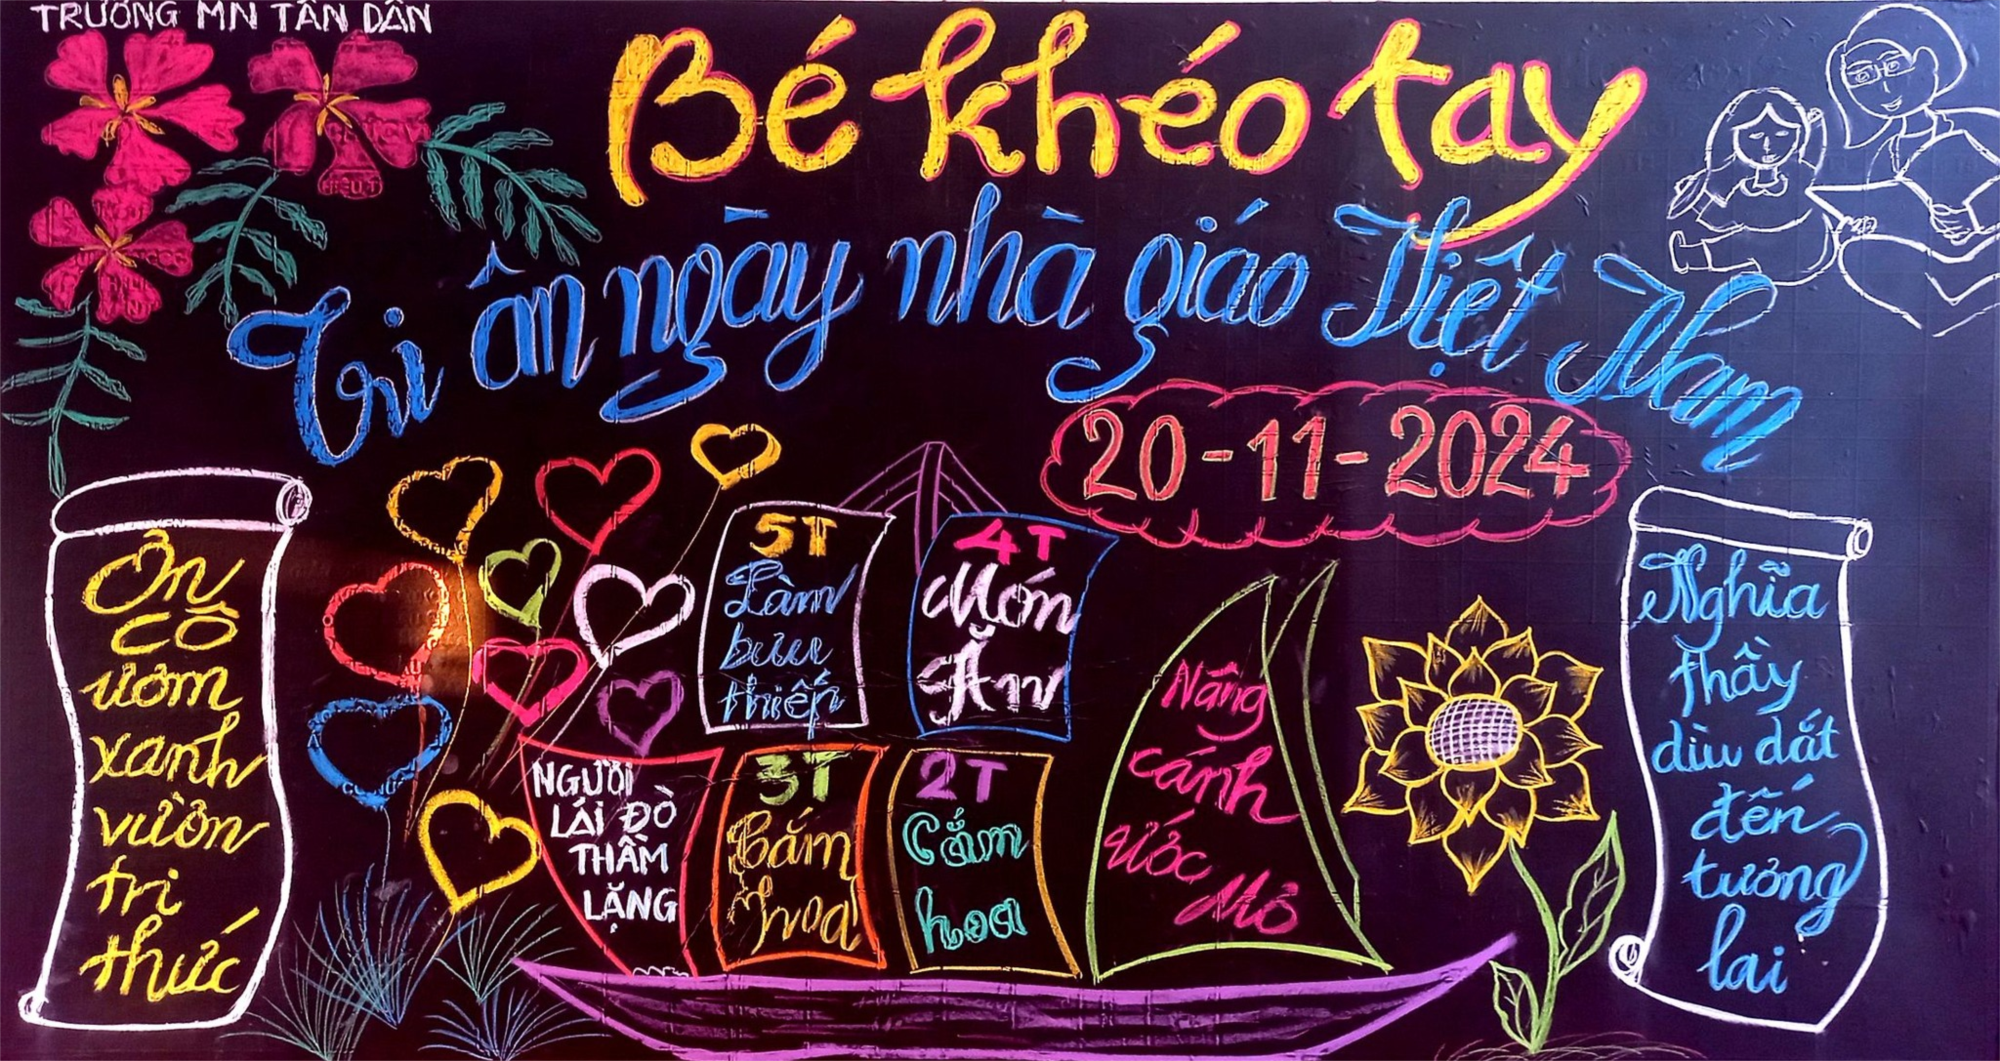 TRƯỜNG MN TÂN DÂN
Bé khéo tay
Tri ân ngày nhà giáo Việt Nam
20-11-2024
Ơn
CÔ
ươm
xanh
vườn
tri
thức
5T
Làm
bưu
thiếp
4T
Món
Ăn
NGƯỜI
LÁI ĐÒ
THẦM
LẶNG
3T
Cắm
hoa
2T
Cắm
hoa
Nâng
cánh
ước
Mơ
Nghĩa
thầy
dìu dắt
đến
tương
lai